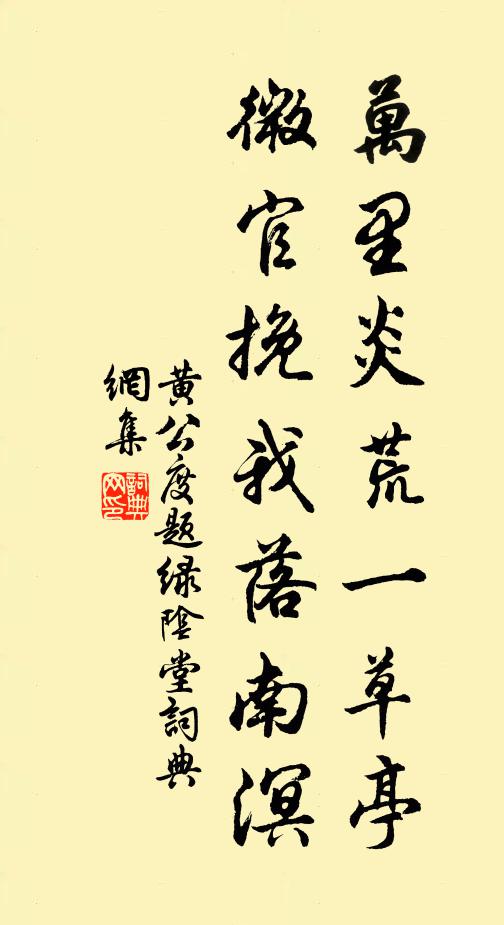 萬里炎荒一草亭
微官挽我落南溟
黄公度题绿陰堂詞典
網集
詞典網印